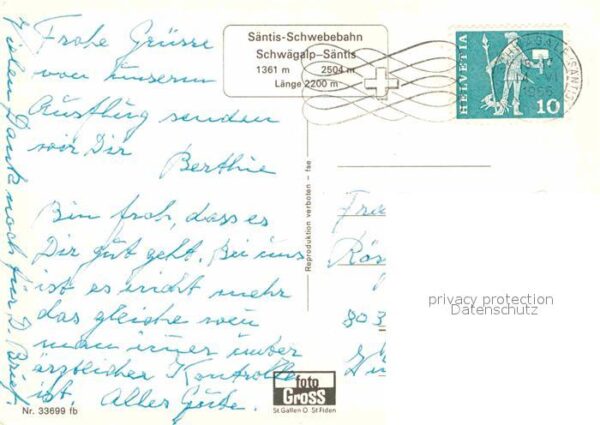 Säntis-Schwebebahn
Schwägalp-Säntis
1361 m 2504 m
Länge 2200 m
HELVETIA
10
Frohe Grüsse
von unserm
Ausflug senden
wir Dir Berthie
Bin froh, dass es
Dir gut geht. Bei uns
ist es nicht mehr
das gleiche wen
man immer unter
ärztlicher Kontrolle
ist. Alles Gute.
Vielen Dank noch für D. Brief.
Reproduktion verboten - fse
Rös
803
privacy protection
Datenschutz
foto
Gross
St Gallen O St Fiden
Nr. 33699 fb